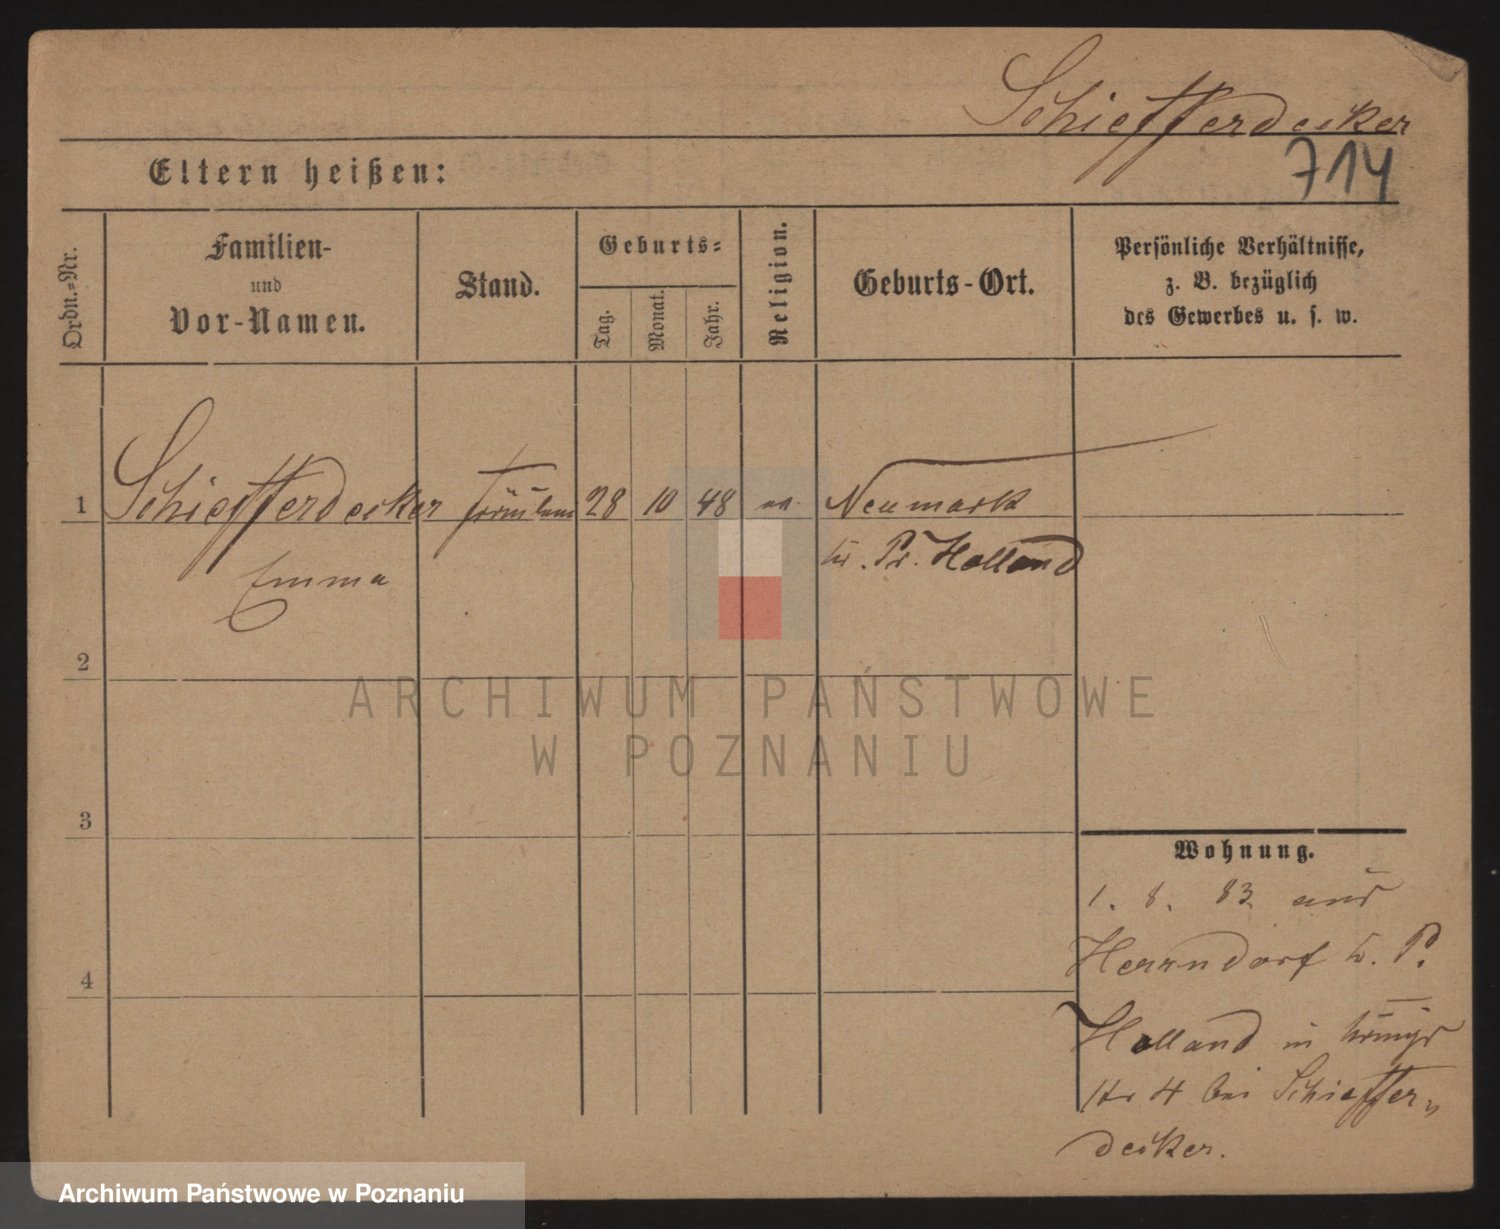 Schiefferdecker
714
Eltern heißen:
Ordn.=Nr.
Familien-
und
Vor-Namen.
Stand.
Geburts=
Tag.
Monat.
Jahr.
Religion.
Geburts-Ort.
Persönliche Verhältnisse,
z. B. bezüglich
des Gewerbes u. s. w.
1 Schiefferdecker Fräulein 28 10 48 Neumark
Emma
Kr. Pr. Holland
2
3
4
Wohnung.
1. 8. 83 aus
Herrndorf b. P.
Holland in Königs
str 4 bei Schieffer=
decker.
ARCHIWUM PAŃSTWOWE
W POZNANIU
Archiwum Państwowe w Poznaniu